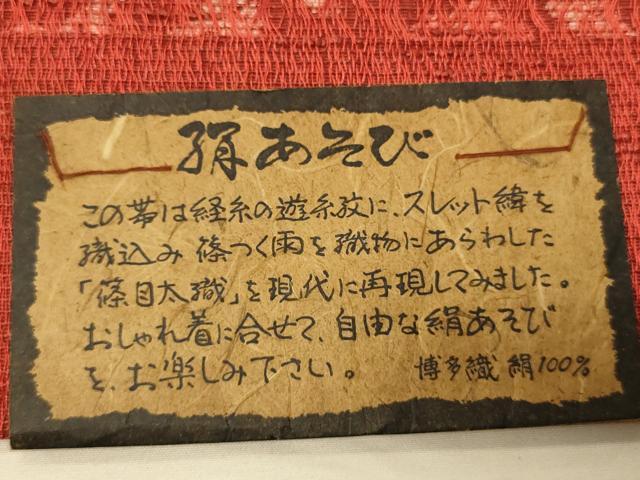 絹あそび
この帯は経糸の遊糸紋に、スレット緯を
織込み 篠つく雨を織物にあらわした
「篠目太織」を現代に再現してみました。
おしゃれ着に合せて、自由な絹あそび
を、お楽しみ下さい。 博多織 絹100%